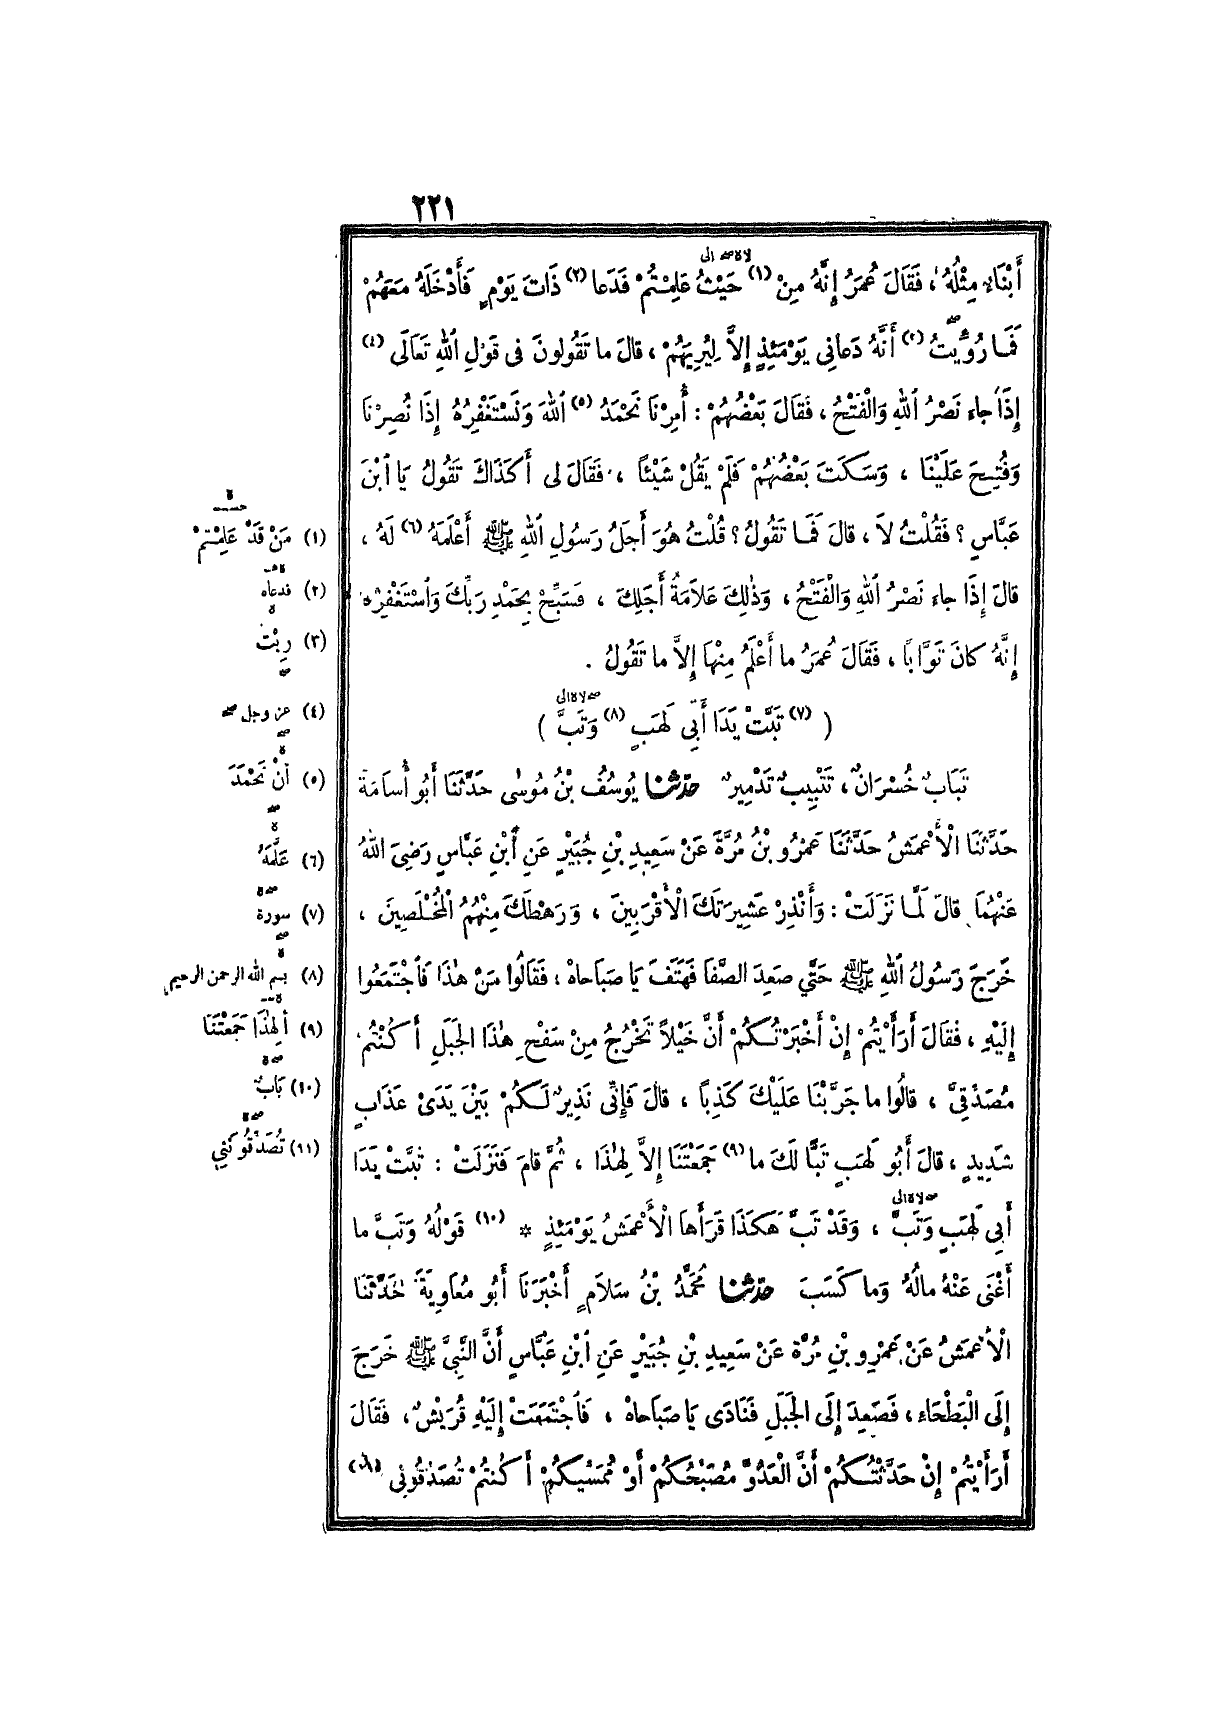 ٢٢١
لا ه صـ الى
أَبْنَاءٌ مِثْلُهُ ، فَقَالَ عُمَرُ إِنَّهُ مِنْ (١) حَيْثُ عَلِمْتُمْ فَدَعَا (٢) ذَاتَ يَوْمٍ فَأَدْخَلَهُ مَعَهُمْ
فَمَا رُؤِيتُ (٣) أَنَّهُ دَعَانِي يَوْمَئِذٍ إِلاَّ لِيُرِيَهُمْ ، قالَ ما تَقُولُونَ فِى قَوْلِ اللهِ تَعَالَى (٤)
إِذَا جاءَ نَصْرُ اللهِ وَالْفَتْحُ ، فَقَالَ بَعْضُهُمْ : أُمِرْنَا نَحْمَدُ (٥) اللهَ وَنَسْتَغْفِرُهُ إِذَا نُصِرْنَا
وَفُتِحَ عَلَيْنَا ، وَسَكَتَ بَعْضُهُمْ فَلَمْ يَقُلْ شَيْئًا ، فَقَالَ لِى أَكَذَاكَ تَقُولُ يَا ابْنَ
عَبَّاسٍ ؟ فَقُلْتُ لاَ ، قالَ فَمَا تَقُولُ ؟ قُلْتُ هُوَ أَجَلُ رَسُولِ اللهِ ﷺ أَعْلَمَهُ (٦) لَهُ ،
قالَ إِذَا جاءَ نَصْرُ اللهِ وَالْفَتْحُ ، وَذٰلِكَ عَلاَمَةُ أَجَلِكَ ، فَسَبِّحْ بِحَمْدِ رَبِّكَ وَاسْتَغْفِرْهُ
إِنَّهُ كانَ تَوَّابًا ، فَقَالَ عُمَرُ ما أَعْلَمُ مِنْهَا إِلاَّ ما تَقُولُ .
صـ لا ه الى
( (٧) تَبَّتْ يَدَا أَبِي لَهَبٍ (٨) وَتَبَّ )
تَبَابٌ خُسْرَانٌ ، تَتْبِيبٌ تَدْمِيرٌ حَدَّثَنَا يُوسُفُ بْنُ مُوسٰى حَدَّثَنَا أَبُو أُسَامَةَ
حَدَّثَنَا الْأَعْمَشُ حَدَّثَنَا عَمْرُو بْنُ مُرَّةَ عَنْ سَعِيدِ بْنِ جُبَيْرٍ عَنِ ابْنِ عَبَّاسٍ رَضِىَ اللهُ
عَنْهُمَا قالَ لَمَّا نَزَلَتْ : وَأَنْذِرْ عَشِيرَتَكَ الْأَقْرَبِينَ ، وَرَهْطَكَ مِنْهُمُ الْمُخْلَصِينَ ،
خَرَجَ رَسُولُ اللهِ ﷺ حَتَّى صَعِدَ الصَّفَا فَهَتَفَ يَا صَبَاحَاهْ ، فَقَالُوا مَنْ هٰذَا فَاجْتَمَعُوا
إِلَيْهِ ، فَقَالَ أَرَأَيْتُمْ إِنْ أَخْبَرْتُكُمْ أَنَّ خَيْلاً تَخْرُجُ مِنْ سَفْحِ هٰذَا الجَبَلِ أَكُنْتُمْ
مُصَدِّقِىَّ ، قالُوا ما جَرَّبْنَا عَلَيْكَ كَذِبًا ، قالَ فَإِنِّى نَذِيرٌ لَكُمْ بَيْنَ يَدَىْ عَذَابٍ
شَدِيدٍ ، قالَ أَبُو لَهَبٍ تَبًّا لَكَ ما (٩) جَمَعْتَنَا إِلاَّ لِهٰذَا ، ثُمَّ قامَ فَنَزَلَتْ : تَبَّتْ يَدَا
صـ لا ه الى
أَبِي لَهَبٍ وَتَبَّ ، وَقَدْ تَبَّ هَكَذَا قَرَأَهَا الْأَعْمَشُ يَوْمَئِذٍ * (١٠) قَوْلُهُ وَتَبَّ ما
أَغْنَى عَنْهُ مالُهُ وَما كَسَبَ حَدَّثَنَا مُحَمَّدُ بْنُ سَلاَمٍ أَخْبَرَنَا أَبُو مُعَاوِيَةَ حَدَّثَنَا
الْأَعْمَشُ عَنْ عَمْرِو بْنِ مُرَّةَ عَنْ سَعِيدِ بْنِ جُبَيْرٍ عَنِ ابْنِ عَبَّاسٍ أَنَّ النَّبِىَّ ﷺ خَرَجَ
إِلَى الْبَطْحَاءِ ، فَصَعِدَ إِلَى الجَبَلِ فَنَادَى يَا صَبَاحَاهْ ، فَاجْتَمَعَتْ إِلَيْهِ قُرَيْشٌ ، فَقَالَ
أَرَأَيْتُمْ إِنْ حَدَّثْتُكُمْ أَنَّ الْعَدُوَّ مُصَبِّحُكُمْ أَوْ مُمَسِّيكُمْ أَكُنْتُمْ تُصَدِّقُونِي (١١)
(١) مَنْ قَدْ عَلِمْتُمْ
(٢) فدعاه
(٣) رِيْتُ
(٤) عز وجل
(٥) أَنْ نَحْمَدَ
(٦) عَلَّمَهُ
(٧) سورة
(٨) بسم الله الرحمن الرحيم
(٩) أَلِهٰذَا جَمَعْتَنَا
(١٠) بَابٌ
(١١) تُصَدِّقُونَنِي